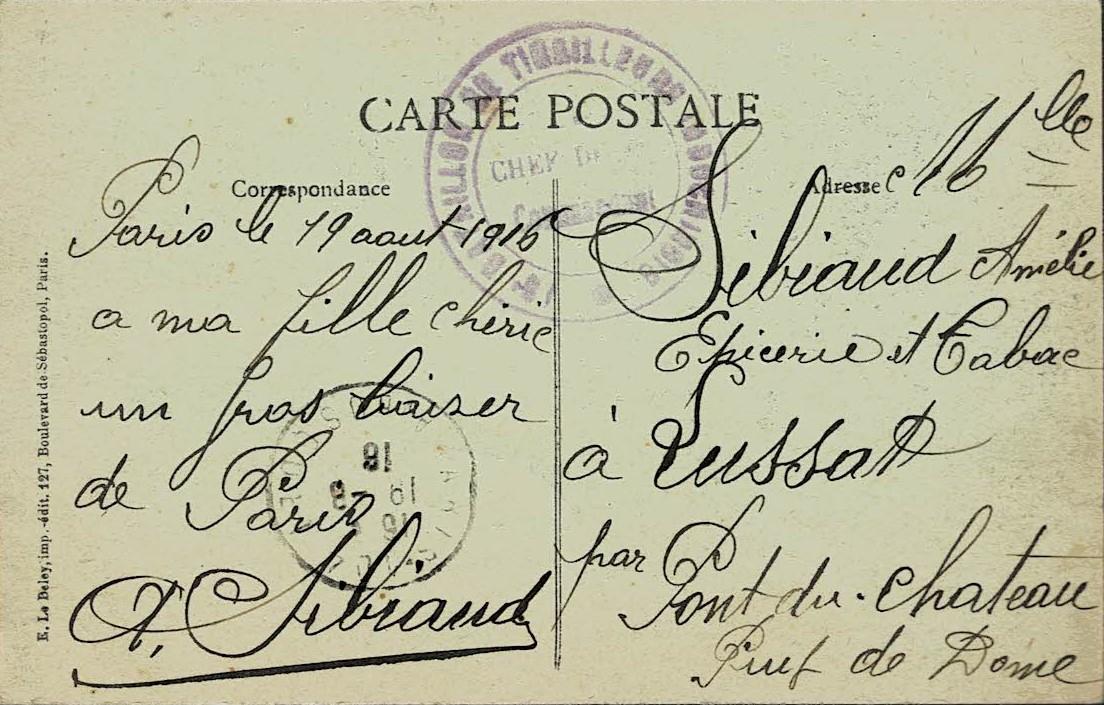 CARTE POSTALE
Correspondance
Paris le 19 aout 1916
a ma fille chérie
un gros baiser
de Paris
A. Sibiaud
Adresse
Mlle
Sibiaud Amélie
Epicerie et Tabac
à Lussat
par
Pont-du-chateau
Puy de Dome
E. Le Deley, imp.-édit. 127, Boulevard de Sébastopol, Paris.
BATAILLON DE TIRAILLEURS
CHEF DE
18